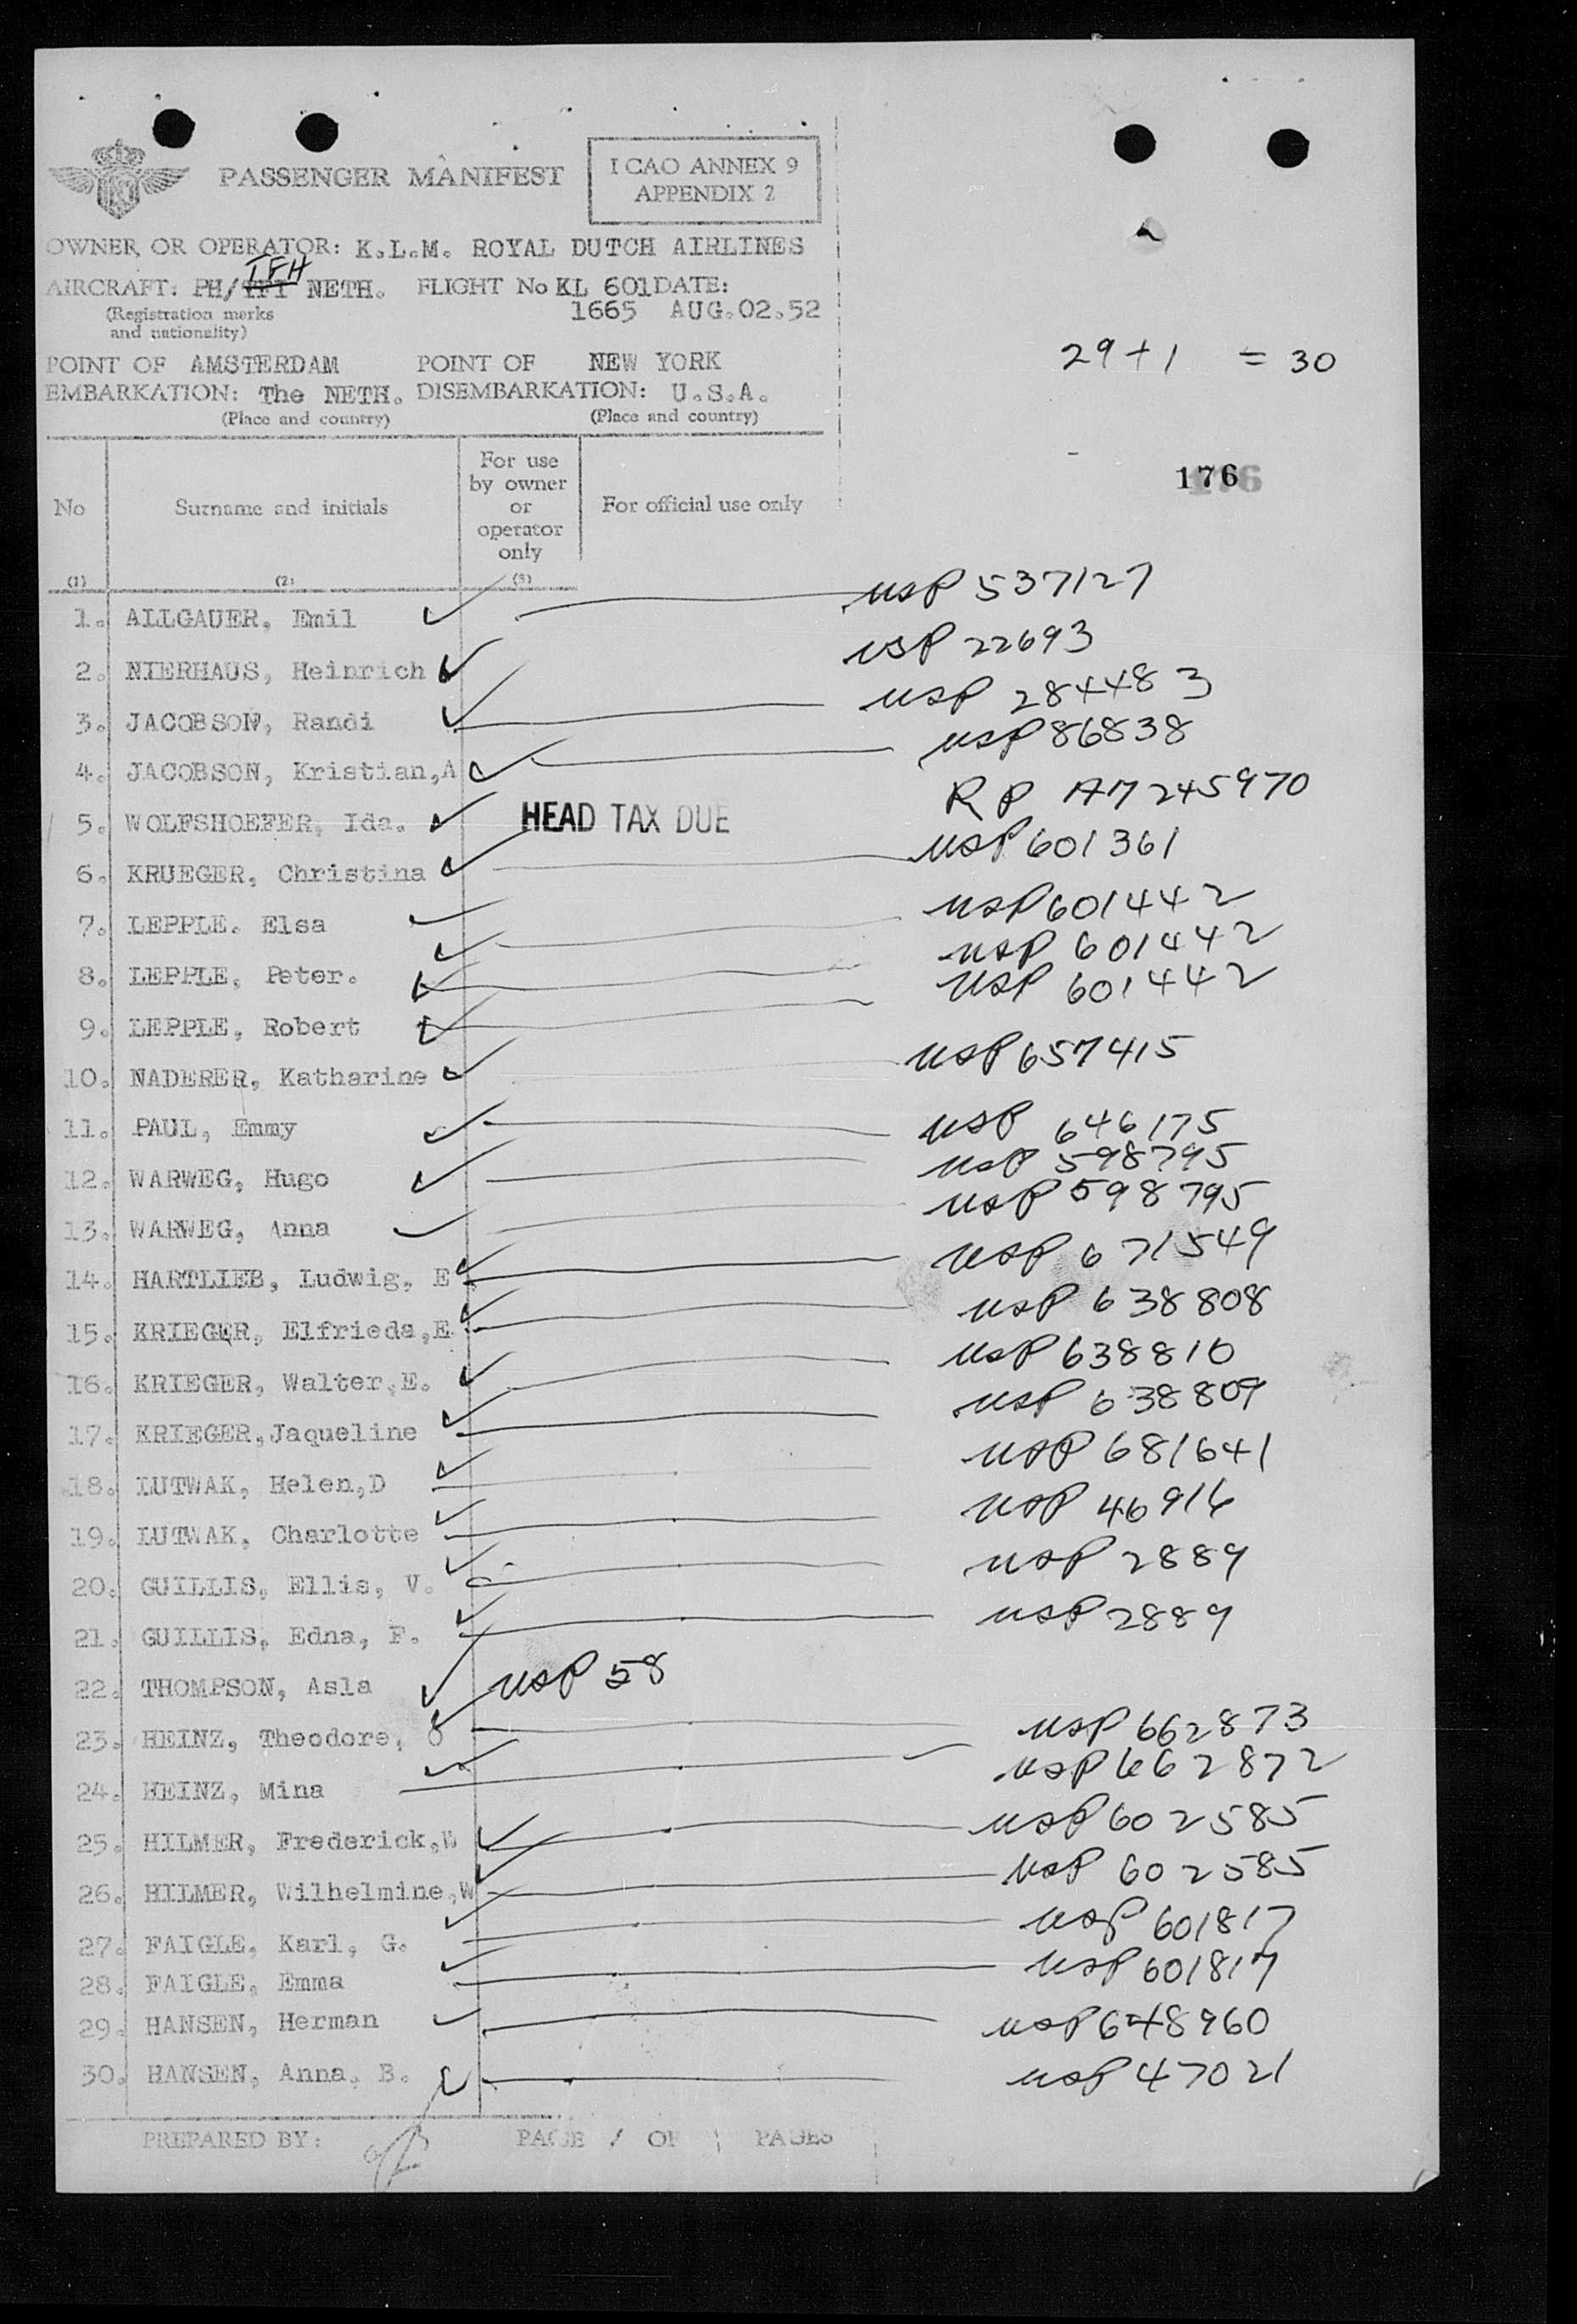 PASSENGER MANIFEST
I CAO ANNEX 9
APPENDIX 2
OWNER OR OPERATOR: K.L.M. ROYAL DUTCH AIRLINES
TFH
AIRCRAFT: PH/TFT NETH. FLIGHT No KL 601 DATE:
(Registration marks and nationality) 1665 AUG.02.52
POINT OF AMSTERDAM POINT OF NEW YORK
EMBARKATION: The NETH. DISEMBARKATION: U.S.A.
(Place and country) (Place and country)
29 + 1 = 30
176
No Surname and initials For use by owner or operator only For official use only
(1) (2) (3)
1. ALLGAUER, Emil USP 537127
2. NIERHAUS, Heinrich USP 22693
3. JACOBSON, Randi USP 284483
4. JACOBSON, Kristian,A USP 86838
5. WOLFSHOEFER, Ida. HEAD TAX DUE RP A7245970
6. KRUEGER, Christina USP 601361
7. LEPPLE. Elsa USP 601442
8. LEPPLE, Peter. USP 601442
9. LEPPLE, Robert USP 601442
10. NADERER, Katharine USP 657415
11. PAUL, Emmy USP 646175
12. WARWEG, Hugo USP 598795
13. WARWEG, Anna USP 598795
14. HARTLIEB, Ludwig, E USP 671549
15. KRIEGER, Elfrieda,E. USP 638808
16. KRIEGER, Walter,E. USP 638810
17. KRIEGER,Jaqueline USP 638809
18. LUTWAK, Helen,D USP 681641
19. LUTWAK, Charlotte USP 46916
20. GUILLIS, Ellis, V. USP 2889
21. GUILLIS, Edna, F. USP 2889
22. THOMPSON, Asla USP 58
23. HEINZ, Theodore, O USP 662873
24. HEINZ, Mina USP 662872
25. HILMER, Frederick,W USP 602585
26. HILMER, Wilhelmine,W USP 602585
27. FAIGLE, Karl, G. USP 601817
28. FAIGLE, Emma USP 601817
29. HANSEN, Herman USP 648960
30. HANSEN, Anna, B. USP 47021
PREPARED BY: PAGE / OF 1 PAGES